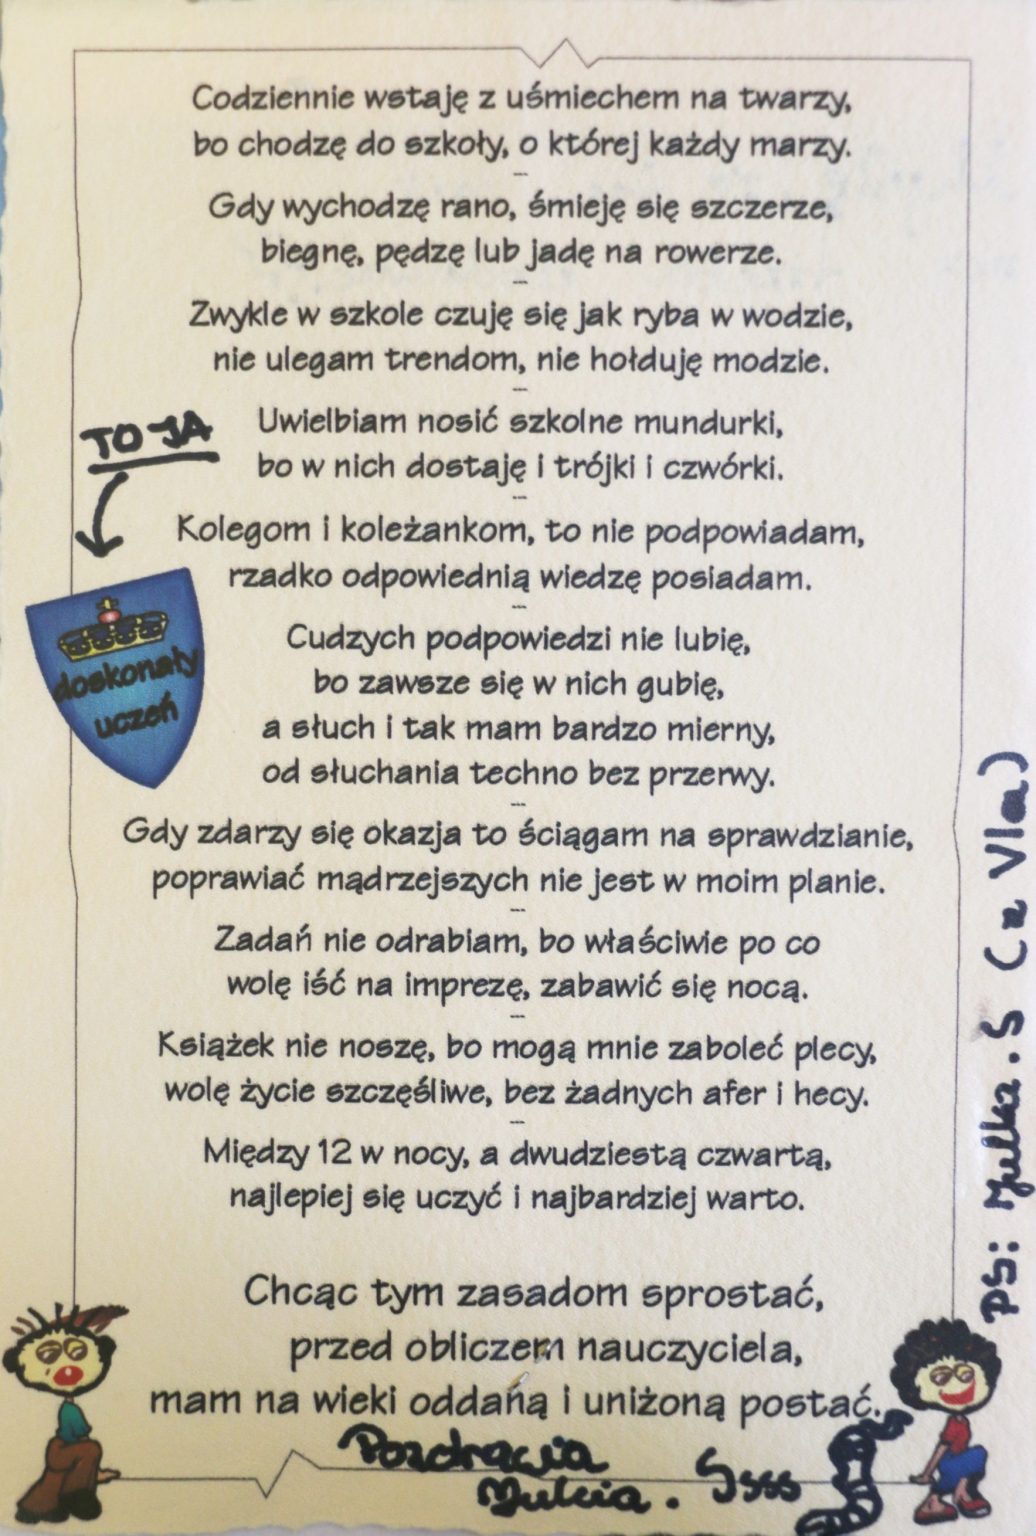 Codziennie wstaję z uśmiechem na twarzy,
bo chodzę do szkoły, o której każdy marzy.
Gdy wychodzę rano, śmieję się szczerze,
biegnę, pędzę lub jadę na rowerze.
Zwykle w szkole czuję się jak ryba w wodzie,
nie ulegam trendom, nie hołduję modzie.
TO JA
Uwielbiam nosić szkolne mundurki,
bo w nich dostaję i trójki i czwórki.
Kolegom i koleżankom, to nie podpowiadam,
rzadko odpowiednią wiedzę posiadam.
doskonały
uczeń
Cudzych podpowiedzi nie lubię,
bo zawsze się w nich gubię,
a słuch i tak mam bardzo mierny,
od słuchania techno bez przerwy.
Gdy zdarzy się okazja to ściągam na sprawdzianie,
poprawiać mądrzejszych nie jest w moim planie.
Zadań nie odrabiam, bo właściwie po co
wolę iść na imprezę, zabawić się nocą.
Książek nie noszę, bo mogą mnie zaboleć plecy,
wolę życie szczęśliwe, bez żadnych afer i hecy.
Między 12 w nocy, a dwudziestą czwartą,
najlepiej się uczyć i najbardziej warto.
Chcąc tym zasadom sprostać,
przed obliczem nauczyciela,
mam na wieki oddaną i uniżoną postać.
Pozdrawia
Julcia. Ssss
PS: Julka.S (z VIa)